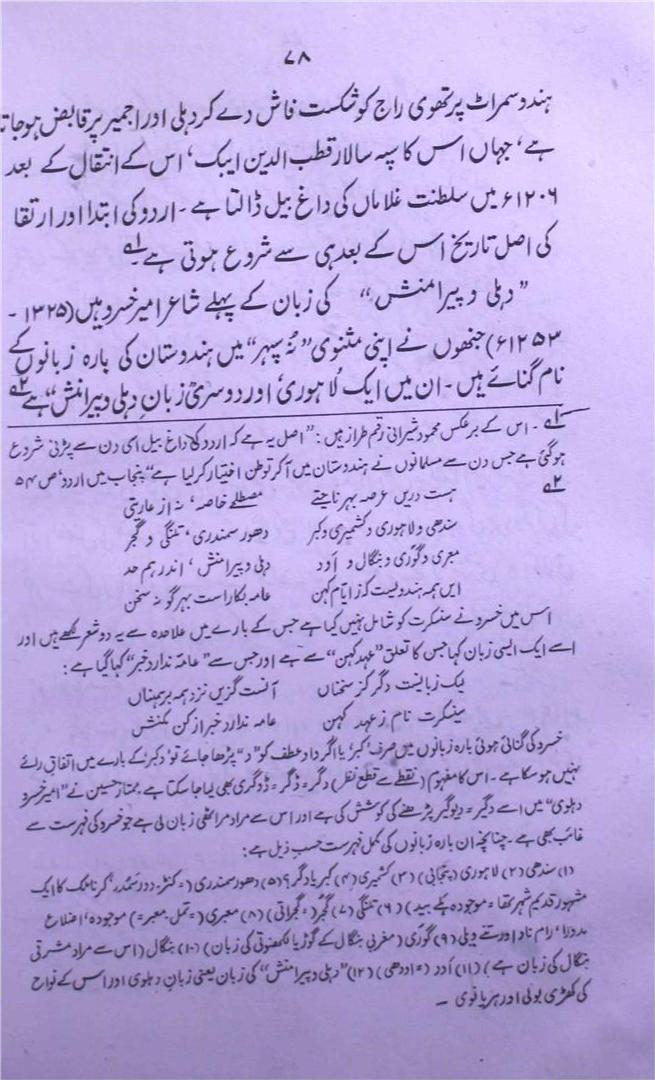 ۷۸
ہندو سمراٹ پرتھوی راج کو شکست فاش دے کر دہلی اور اجمیر پر قابض ہو جاتا
ہے، جہاں اس کا سپہ سالار قطب الدین ایبک، اس کے انتقال کے بعد
۱۲۰۶ء میں سلطنت غلاماں کی داغ بیل ڈالتا ہے۔ اردو کی ابتدا اور ارتقا
کی اصل تاریخ اس کے بعد ہی سے شروع ہوتی ہے۔۱؎
”دہلی و پیرامنش“ کی زبان کے پہلے شاعر امیر خسرو ہیں (۱۳۲۵ -
۱۲۵۳ء) جنھوں نے اپنی مثنوی ”نُہ سپہر“ میں ہندوستان کی بارہ زبانوں کے
نام گنائے ہیں۔ ان میں ایک لاہوری، اور دوسری زبان دہلی و پیرامنش“ ہے ۲؎
۱؎ - اس کے برعکس محمود شیرانی رقم طراز ہیں: ”اصل یہ ہے کہ اردو کی داغ بیل اسی دن سے پڑنی شروع
ہو گئی ہے جس دن سے مسلمانوں نے ہندوستان میں آکر توطن اختیار کر لیا ہے“ پنجاب میں اردو، ص ۵۴
۲؎ ہست دریں عرصہ بہر ناحیتے مصطلحے خاصہ، نہ از عاریتی
سندھی و لاہوری و کشمیری و کبر دھور سمندری، تلنگی و گجر
معبری و گوری و بنگال و اَود دہلی و پیرامنش، اندر ہمہ حد
ایں ہمہ ہندویست کز ایام کہن عامہ بکار است بہر گونہ سخن
اس میں خسرو نے سنسکرت کو شامل نہیں کیا ہے جس کے بارے میں علاحدہ سے یہ دو شعر لکھے ہیں اور
اسے ایک ایسی زبان کہا جس کا تعلق ”عہد کہن“ سے ہے اور جس سے ”عامہ ندارد خبر“ کہا گیا ہے:
لیک زبانیست دگر کز سخناں آنست گزیں نزد ہمہ برہمناں
سینسکرت نام ز عہد کہن عامہ ندارد خبر از کن مکنش
خسرو کی گنائی ہوئی بارہ زبانوں میں صرف ’کبر‘ یا اگر داد عطف کو ”د“ پڑھا جائے تو ’دکبر‘ کے بارے میں اتفاق رائے
نہیں ہو سکا ہے۔ اس کا مفہوم (نقطے سے قطع نظر) دگر = ڈگر = ڈوگری بھی لیا جا سکتا ہے۔ ممتاز حسین نے ”امیر خسرو
دہلوی“ میں اسے دگیر = دیوگیر پڑھنے کی کوشش کی ہے اور اس سے مراد مراٹھی زبان لی ہے جو خسرو کی فہرست سے
غائب بھی ہے۔ چنانچہ ان بارہ زبانوں کی مکمل فہرست حسب ذیل ہے:
(۱) سندھی (۲) لاہوری (پنجابی) (۳) کشمیری (۴) کبر یا دگر؟ (۵) دھور سمندری (= کنڑ۔ دور سَمُدر، کرناٹک کا ایک
مشہور قدیم شہر تھا = موجودہ ہلے بید) (۶) تلنگی (۷) گجر (= گجراتی) (۸) معبری (= تمل۔ معبر =) موجودہ، اضلاع
مدورا، رام ناد اور تنے ویلی (۹) گوری (مغربی بنگال کے گوڑ یا لکھنوتی کی زبان) (۱۰) بنگال (اس سے مراد مشرقی
بنگال کی زبان ہے) (۱۱) اَود (= اودھی) (۱۲) ”دہلی و پیرامنش“ کی زبان یعنی زبان دہلوی اور اس کے نواح
کی کھڑی بولی اور ہریانوی ۔